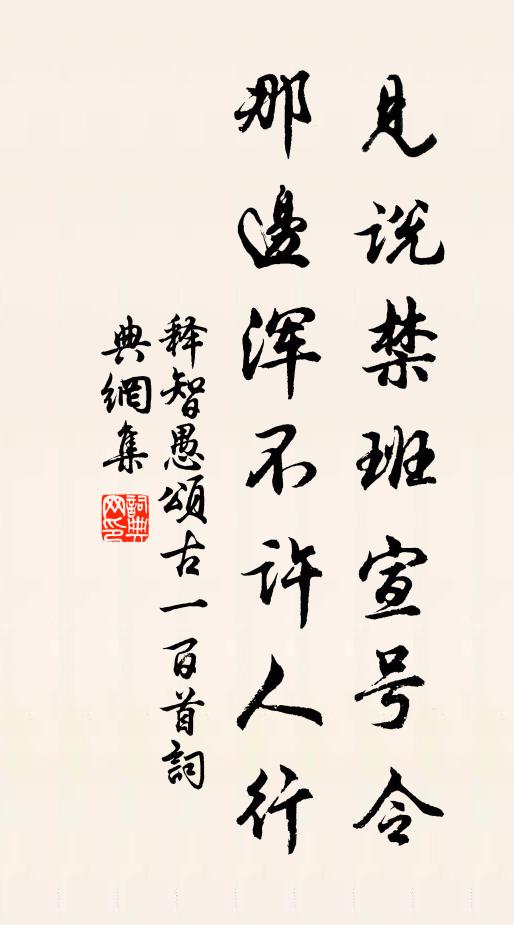 見说禁班宣号令
那邊渾不許人行
释智愚頌古一百首詞
典網集
詞典网印